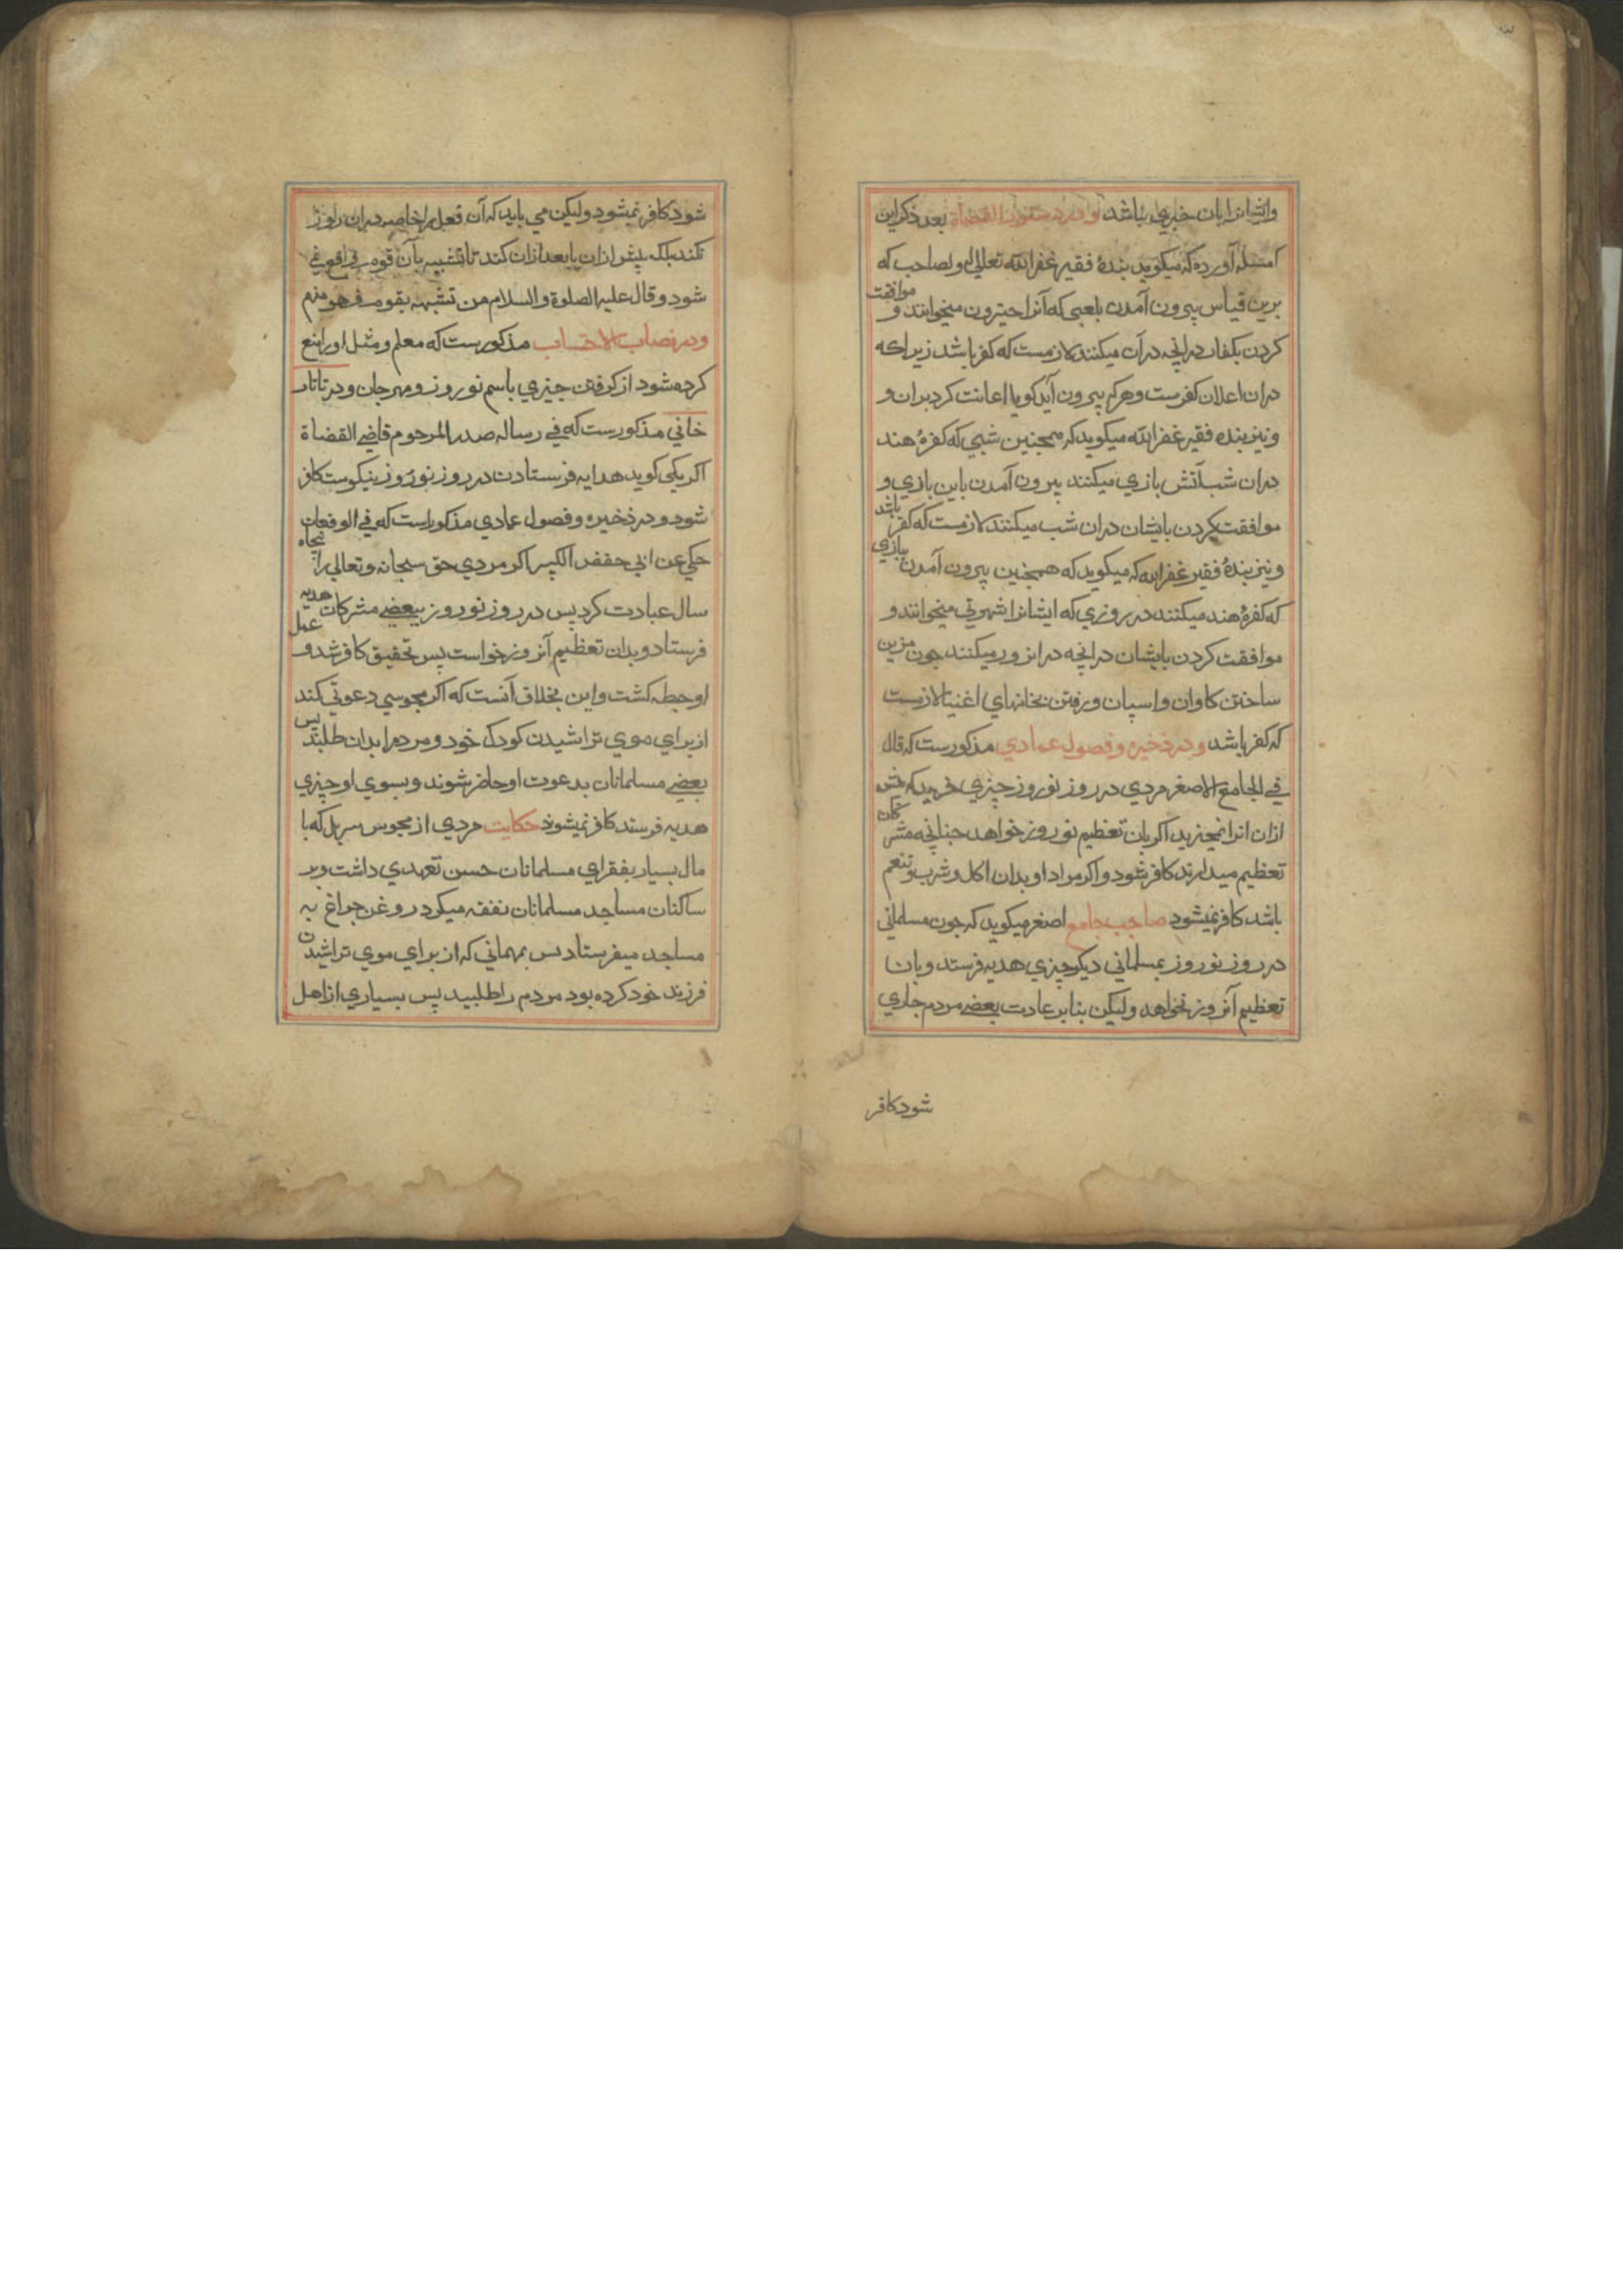 وایشانرا بان خبری نباشد و در حقوق القضاة بعد ذکر این
مسئله آورده که میکوید بندهٔ فقیر غفر الله تعالی له ولصاحب که
برین قیاس بیرون آمدن بلعبی که آنرا میخوانند و موافقت
کردن بکفار در انچه در آن میکنند لازمست که کفر باشد زیراکه
در ان اعلان کفرست و هرکه بیرون آید کویا اعانت کرد بران و
و نیز بنده فقیر غفر الله میکوید که همچنین شبی که کفرهٔ هند
در ان شب آتش بازی میکنند بیرون آمدن باین بازی و
موافقت کردن بایشان دران شب میکنند لازمست که کفر باشد
و نیز بندهٔ فقیر غفر الله که میکوید که همچنین بیرون آمدن ببازی
که کفرهٔ هند میکنند در روزی که ایشانرا میخوانند و
موافقت کردن بایشان در انچه در انروز میکنند جون مزین
ساختن کاوان و اسپان و رفتن بخانهای اغنیا لازمست
که کفر باشد و در ذخیره و فصول عمادی مذکورست که قال
فی الجامع الاصغر مردی در روز نوروز چیزی خرید که پیش
ازان انرا نمیخرید اکر بان تعظیم نوروز خواهد جنانچه مشرکان
تعظیم میدارند کافر شود و اکر مراد او بدان اکل و شرب و تنعم
باشد کافر نمیشود صاحب جامع اصغر میکوید که جون مسلمانی
در روز نوروز بمسلمانی دیکر چیزی هدیه فرستد و بان
تعظیم آنروز نخواهد ولیکن بنابر عادت بعضی مردم جاری
شود کافر
شود کافر نمیشود ولیکن می باید که آن فعل را خاصه در ان روز
نکند بلکه پیش ازان یا بعد ازان کند تا تشبیه بآن قوم واقع نمی
شود و قال علیه الصلوة والسلام من تشبه بقوم فهو منهم
و در نصاب الاحتساب مذکورست که معلم و مثل او را منع
کرده شود از کرفتن چیزی باسم نوروز و مهرجان و در تاتار
خانی مذکورست که فی رساله صدر المرحوم قاضی القضاة
اکر یکی کوید هدایه فرستادن در روز نوروز نیکوست کافر
شود و در ذخیره و فصول عمادی مذکور است که فی الوقعات
حکی عن ابی حفص الکبیر اکر مردی حق سبحانه و تعالی را پنجاه
سال عبادت کرد پس در روز نوروز ببعضی مشرکان هدیه
فرستاد و بدان تعظیم آنروز خواست پس تحقیق کافر شد و عمل
او حبطه کشت و این بخلاف آنست که اکر مجوسی دعوتی کند
از برای موی تراشیدن کودک خود و مردمرا بدان طلبند پس
بعضی مسلمانان بدعوت او حاضر شوند و بسوی او چیزی
هدیه فرستد کافر نمیشود حکایت مردی از مجوس سرپل که با
مال بسیار بفقرای مسلمانان حسن تعهدی داشت و بر
ساکنان مساجد مسلمانان نفقه میکرد روغن چراغ به
مساجد میفرستاد پس بمهمانی که از برای موی تراشیدن
فرزند خود کرده بود مردم را طلبید پس بسیاری از اهل